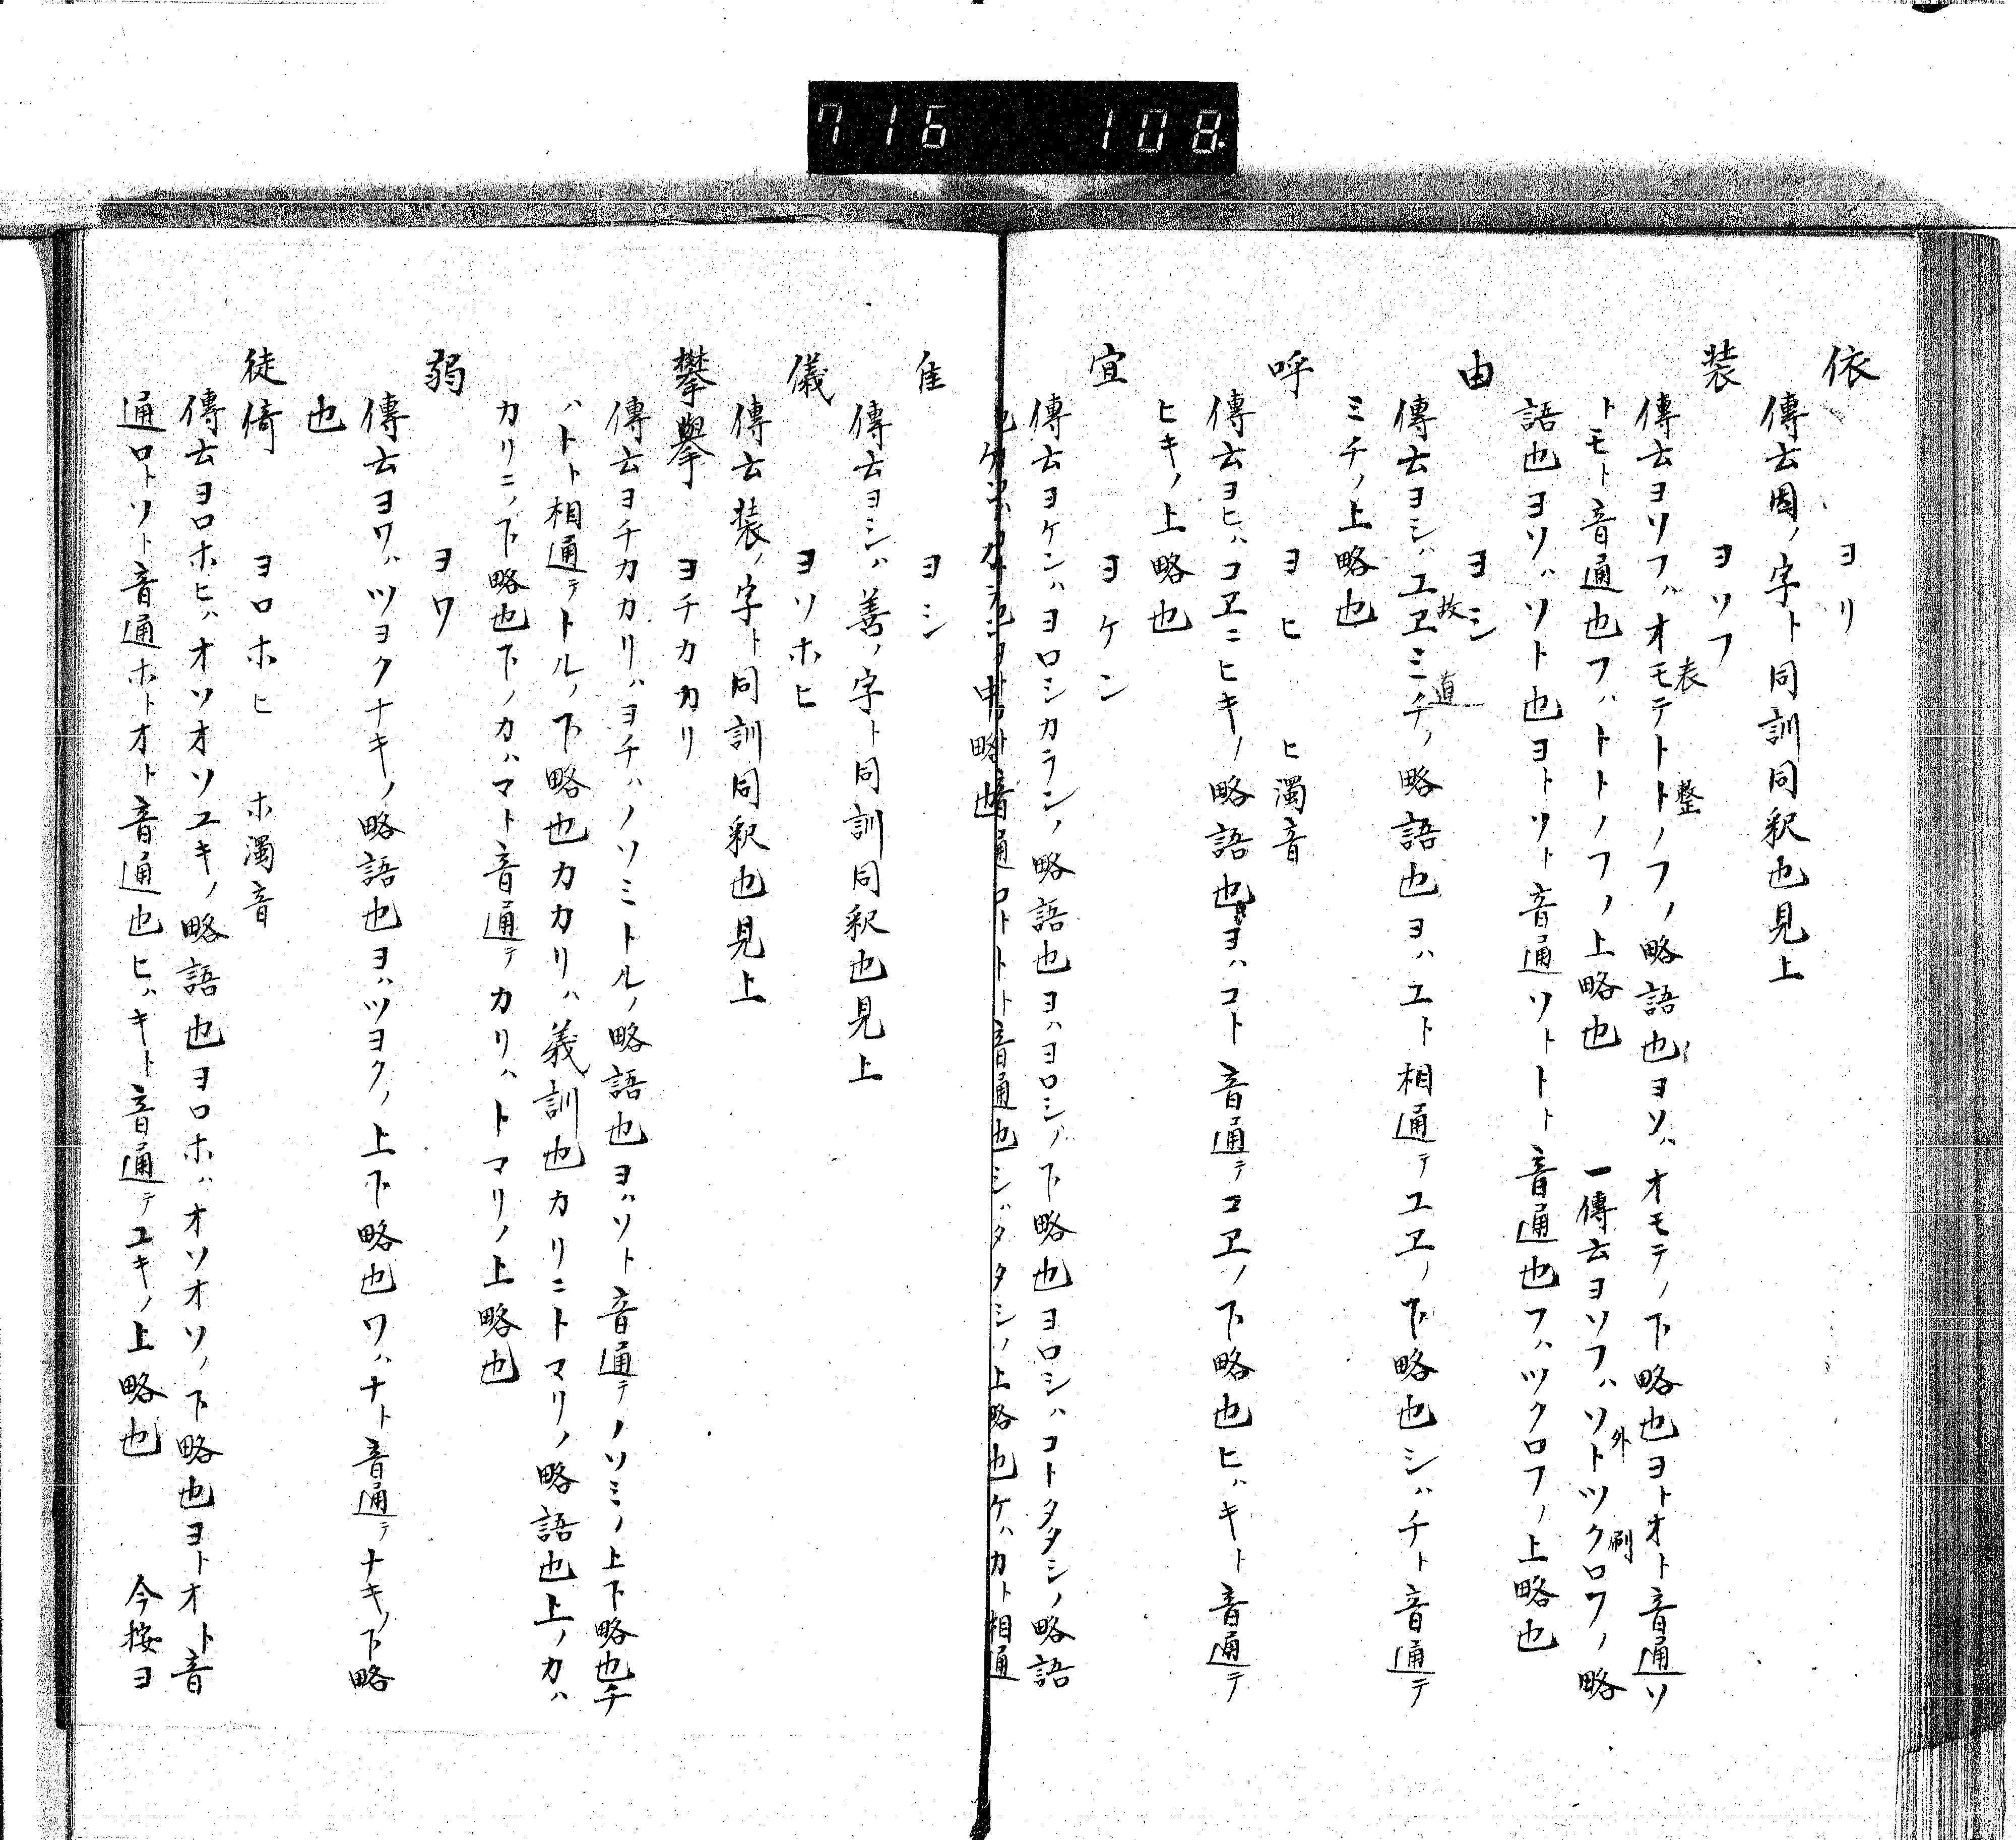 716 108
依 ヨリ
傳云因ノ字ト同訓同釈也見上
装 ヨソフ
傳云ヨソフハオモテトトノフノ略語也ヨソハオモテノ下略也ヨトオト音通ソ
表 整
トモト音通也フハトトノフノ上略也 一傳云ヨソフハソトツクロフノ略
外 刷
語也ヨソハソト也ヨトソト音通ソトトト音通也フハツクロフノ上略也
由 ヨシ
傳云ヨシハユヱミチノ略語也ヨハユト相通テユヱノ下略也シハチト音通テ
故 道
ミチノ上略也
呼 ヨヒ ヒ濁音
傳云ヨヒハコヱニヒキノ略語也ヨハコト音通テコヱノ下略也ヒハキト音通テ
ヒキノ上略也
宜 ヨケン
傳云ヨケンハヨロシカランノ略語也ヨハヨロシノ下略也ヨロシハコトタタシノ略語
音通ロトトト音通也シハタタシノ上略也ケハカト相通
中略也
佳 ヨシ
傳云ヨシハ善ノ字ト同訓同釈也見上
儀 ヨソホヒ
傳云装ノ字ト同訓同釈也見上
攀擧 ヨチカカリ
傳云ヨチカカリハヨチハノソミトルノ略語也ヨハソト音通テノソミノ上下略也チ
ハトト相通テトルノ下略也カカリハ義訓也カリニトマリノ略語也上ノカハ
カリニノ下略也下ノカハマト音通テカリハトマリノ上略也
弱 ヨワ
傳云ヨワハツヨクナキノ略語也ヨハツヨクノ上下略也ワハナト音通テナキノ下略
也
徒倚 ヨロホヒ ホ濁音
傳云ヨロホヒハオソオソユキノ略語也ヨロホハオソオソノ下略也ヨトオト音
通ロトソト音通ホトオト音通也ヒハキト音通テユキノ上略也 今按ヨ